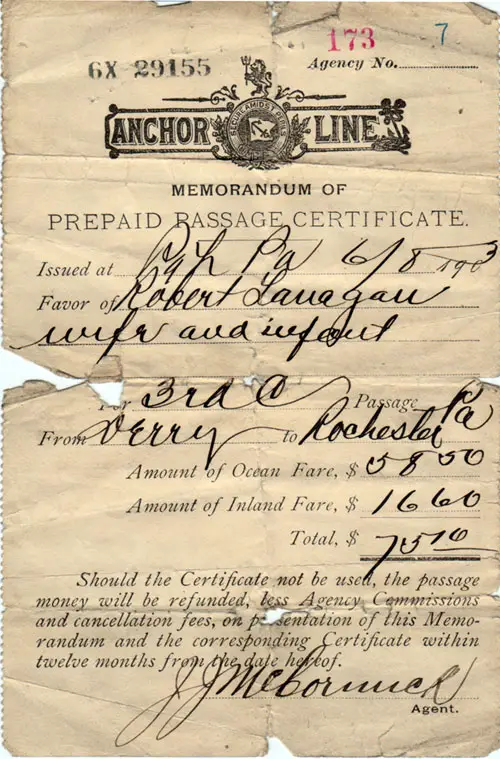 173 7
6X 29155 Agency No.
SECURE AMIDST PERILS
ANCHOR LINE
MEMORANDUM OF
PREPAID PASSAGE CERTIFICATE.
Issued at Pgh Pa 6/8 1903
Favor of Robert Lanagan
wife and infant
For 3rd C Passage
From Derry to Rochester Pa
Amount of Ocean Fare, $ 58 50
Amount of Inland Fare, $ 16 60
Total, $ 75 10
Should the Certificate not be used, the passage
money will be refunded, less Agency Commissions
and cancellation fees, on presentation of this Memo-
randum and the corresponding Certificate within
twelve months from the date hereof.
J J McCormick
Agent.